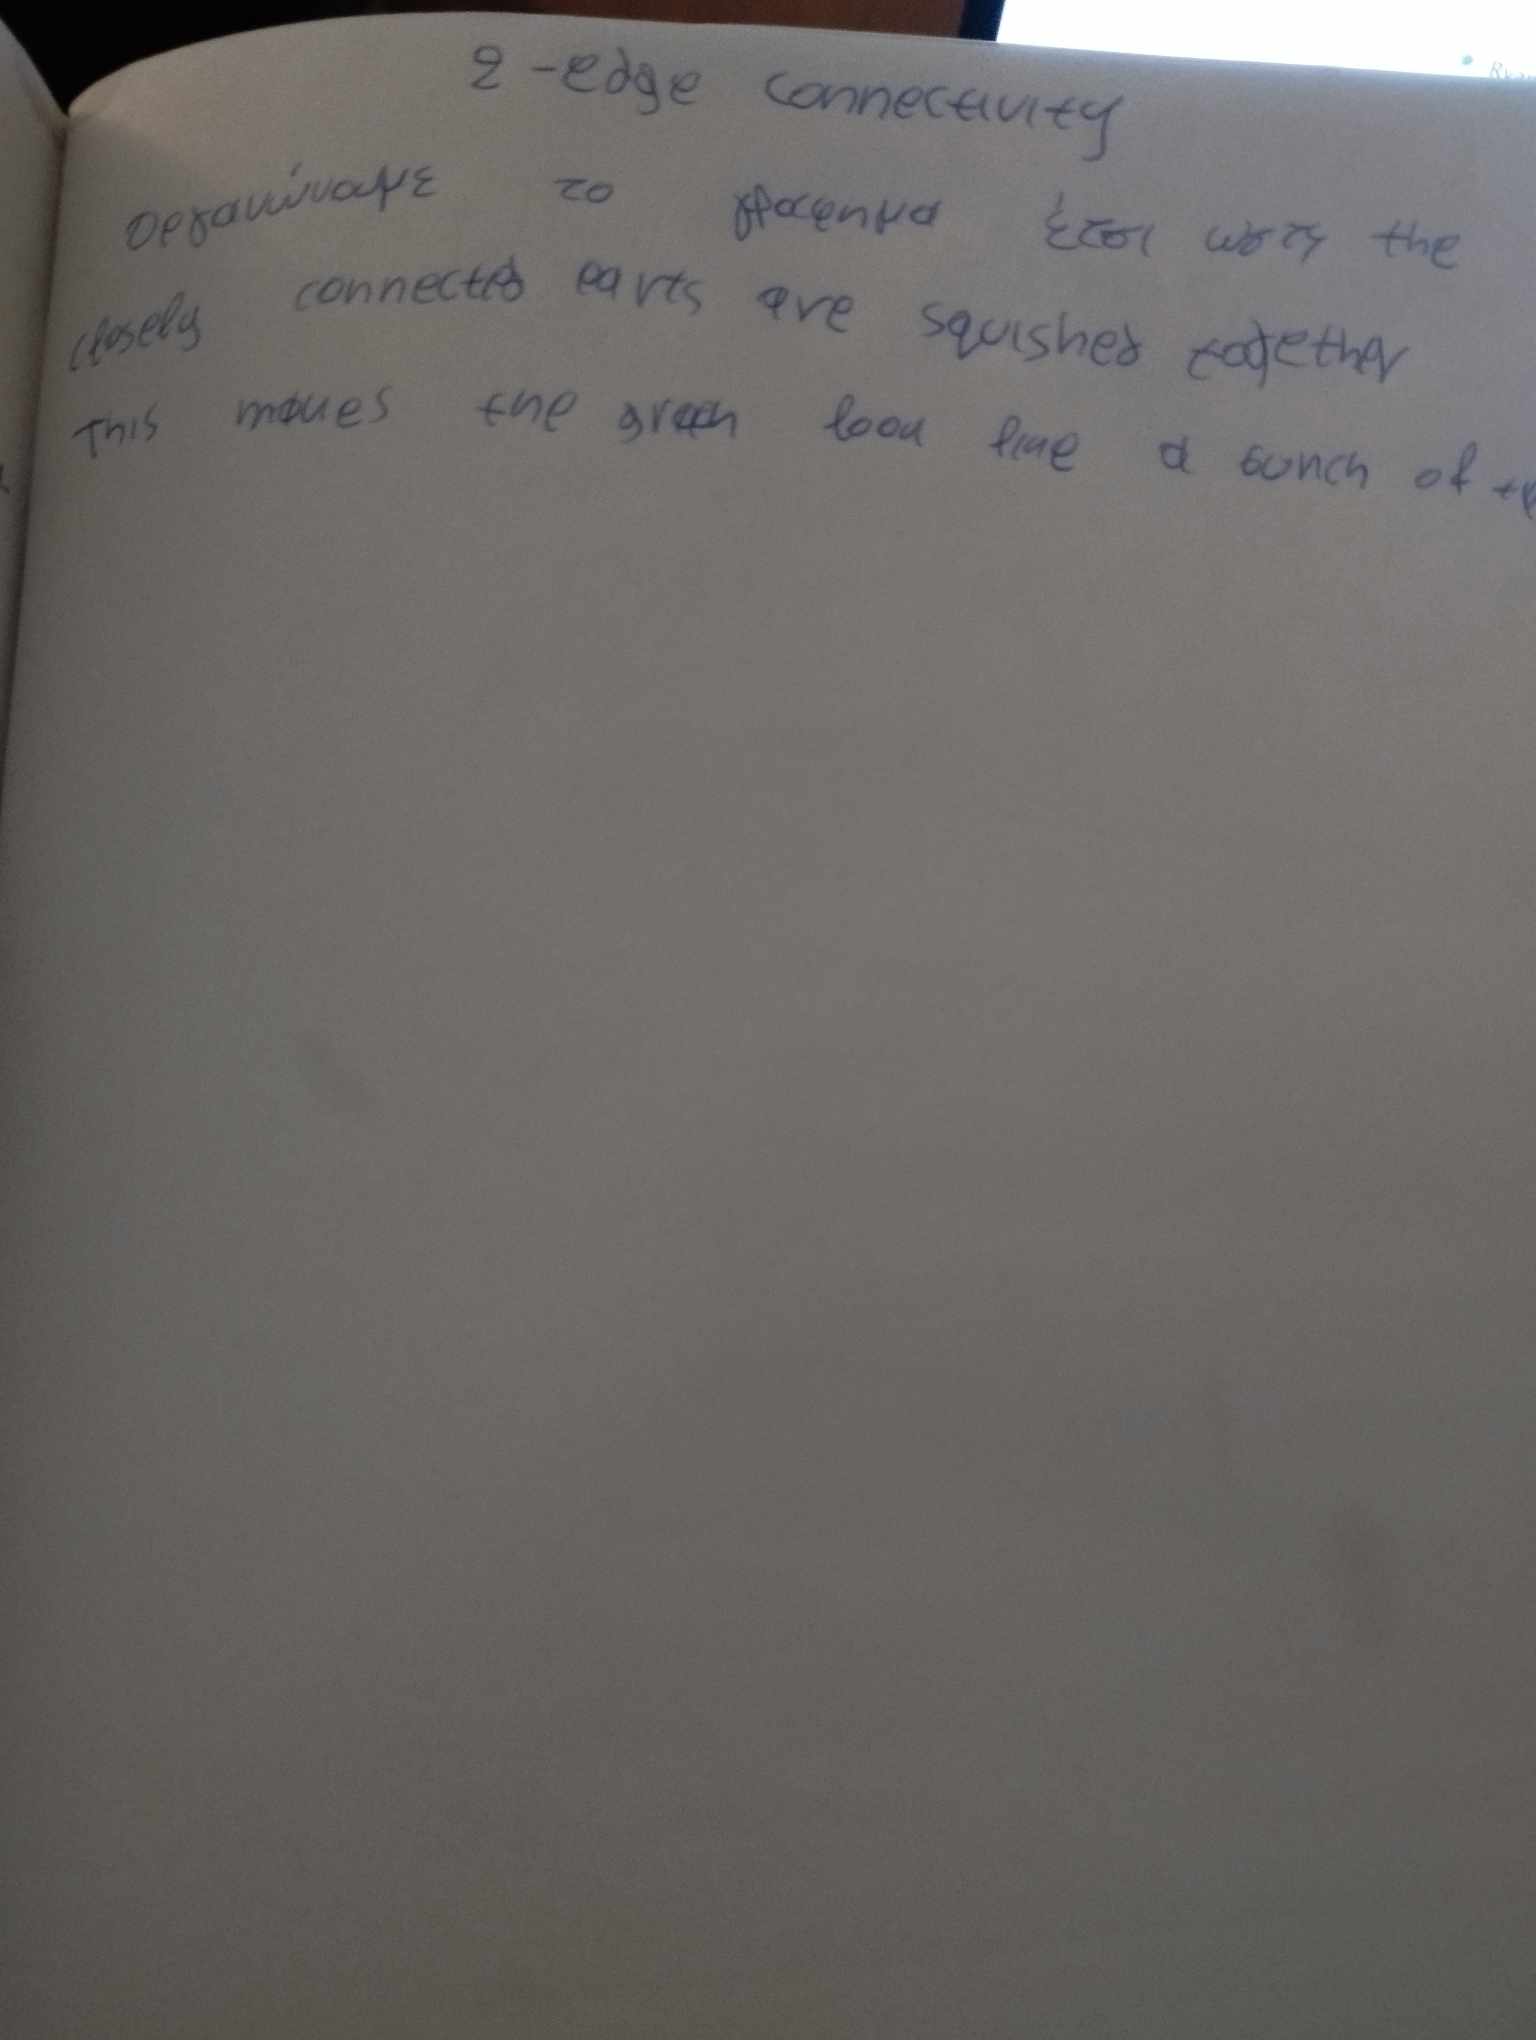 2-edge connectivity
οργανώναμε το γράφημα έτσι ωστε the
closely connected parts are squished together
This makes the graph look like a bunch of